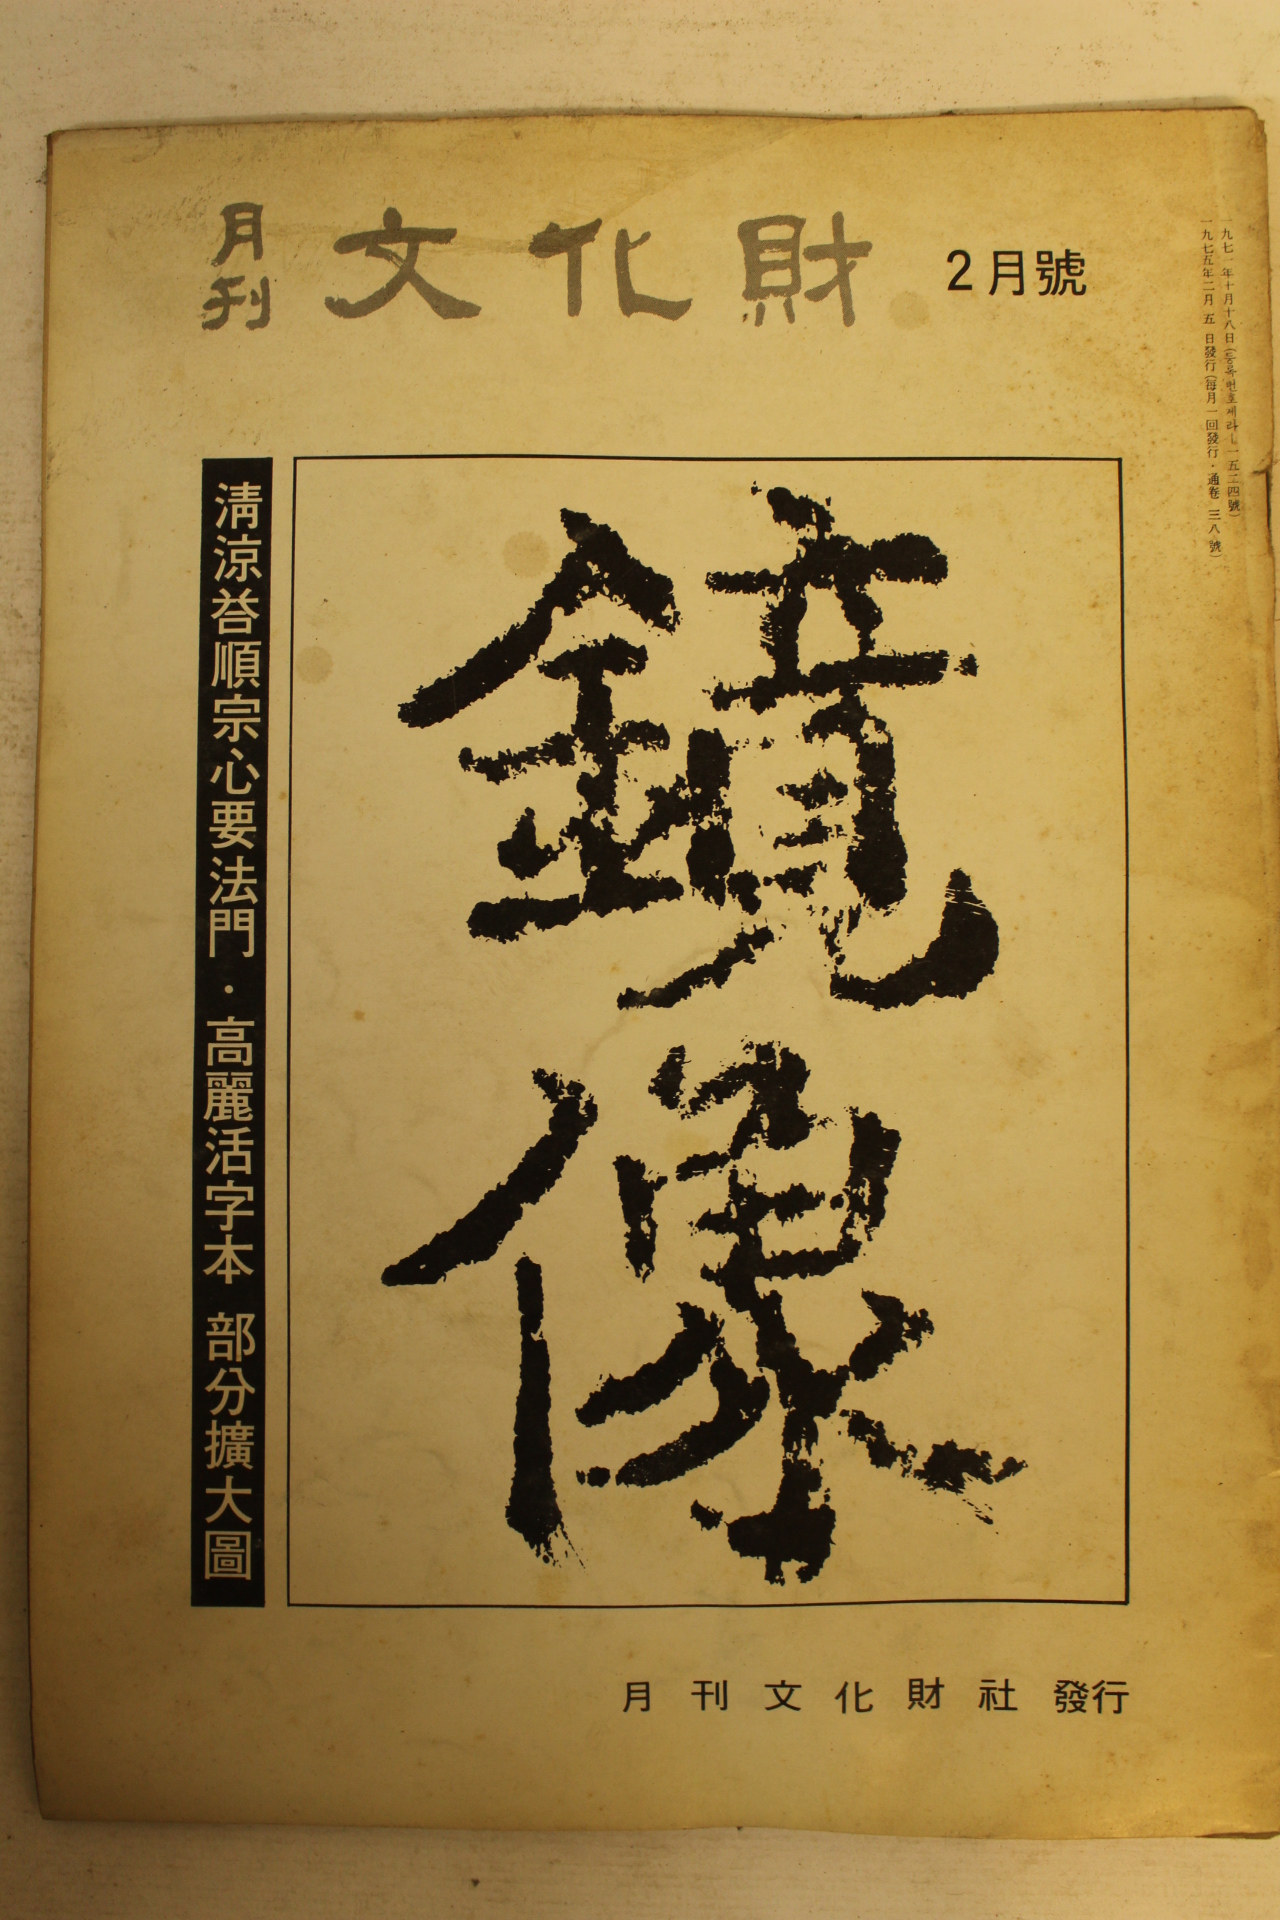 月刊 文化財 2月號
一九七一年十月十八日(등록번호제라—一五二四號)
一九七五年二月 五 日發行(每月一回發行·通卷 三八 號)
鏡像
淸涼答順宗心要法門·高麗活字本 部分擴大圖
月刊文化財社 發行